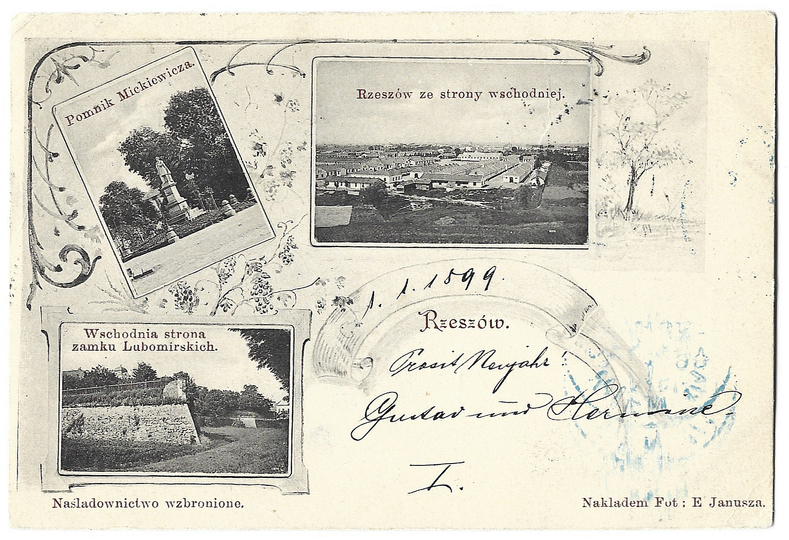 Pomnik Mickiewicza.
Rzeszów ze strony wschodniej.
1. 1. 1899.
Rzeszów.
Prosit Neujahr!
Gustav und Hermine
I.
Wschodnia strona
zamku Lubomirskich.
Naśladownictwo wzbronione.
Nakładem Fot: E Janusza.